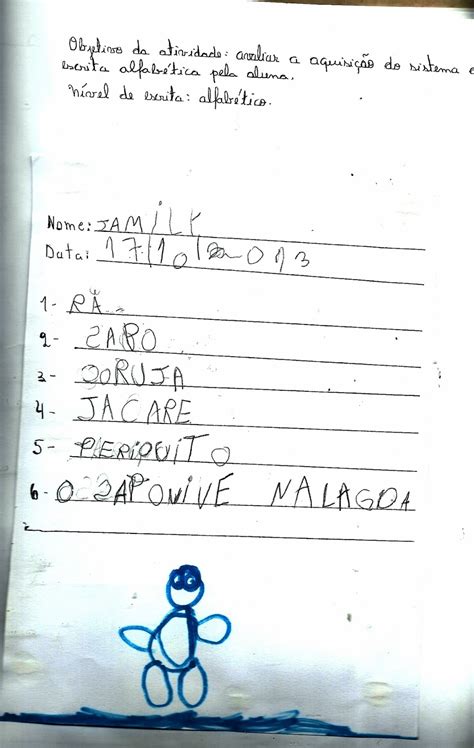 Objetivo da atividade: avaliar a aquisição do sistema
escrita alfabética pela aluna.
Nível de escrita: alfabético.
Nome: JAMILY
Data: 17/10/2013
1- RÃ
2- SAPO
3- CORUJA
4- JACARE
5- PERIQUITO
6- O SAPOVIVE NALAGOA